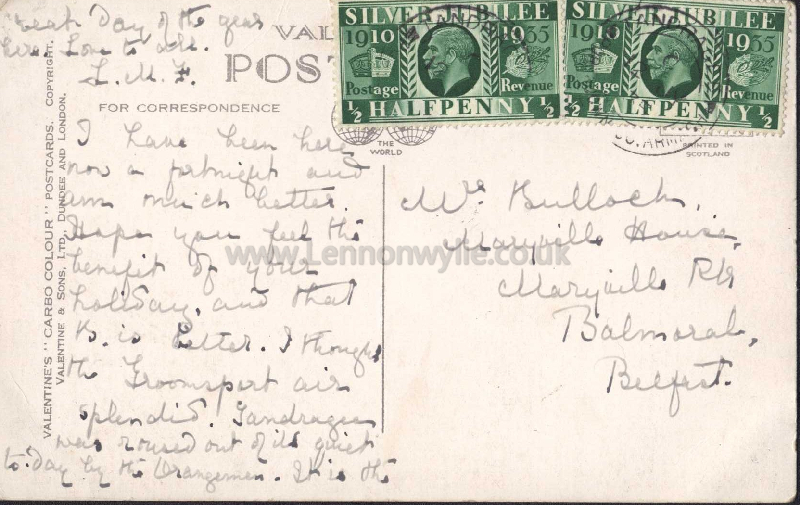 great Day of the year
here. Love to all.
L. M. F.
VAL
POST
FOR CORRESPONDENCE
VALENTINE'S "CARBO COLOUR" POSTCARDS. COPYRIGHT.
VALENTINE & SONS, LTD., DUNDEE AND LONDON.
SILVER JUBILEE
1910 1935
Postage Revenue
½ HALFPENNY ½
SILVER JUBILEE
1910 1935
Postage Revenue
½ HALFPENNY ½
THE
WORLD
CO. ARM
PRINTED IN
SCOTLAND
I have been here
now a fortnight and
am much better.
Hope you feel the
benefit of your
holiday, and that
K. is better. I thought
the Groomsport air
splendid. Tandragee
was roused out of its quiet
to-day by the Orangemen. It is the
Mrs Bulloch,
Maryville House,
Maryville Pk
Balmoral,
Belfast.
www.Lennonwylie.co.uk